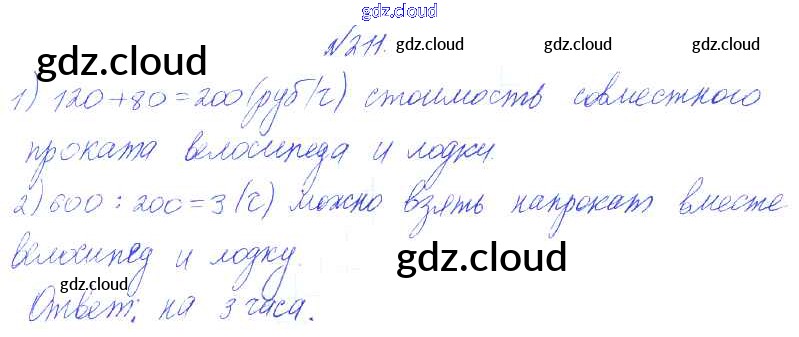 gdz.cloud
№211. gdz.cloud gdz.cloud
gdz.cloud
1) 120+80=200 (руб/ч) стоимость совместного
проката велосипеда и лодки.
2) 600 : 200=3 (ч) можно взять напрокат вместе
велосипед и лодку.
gdz.cloud
gdz.cloud
Ответ: на 3 часа.